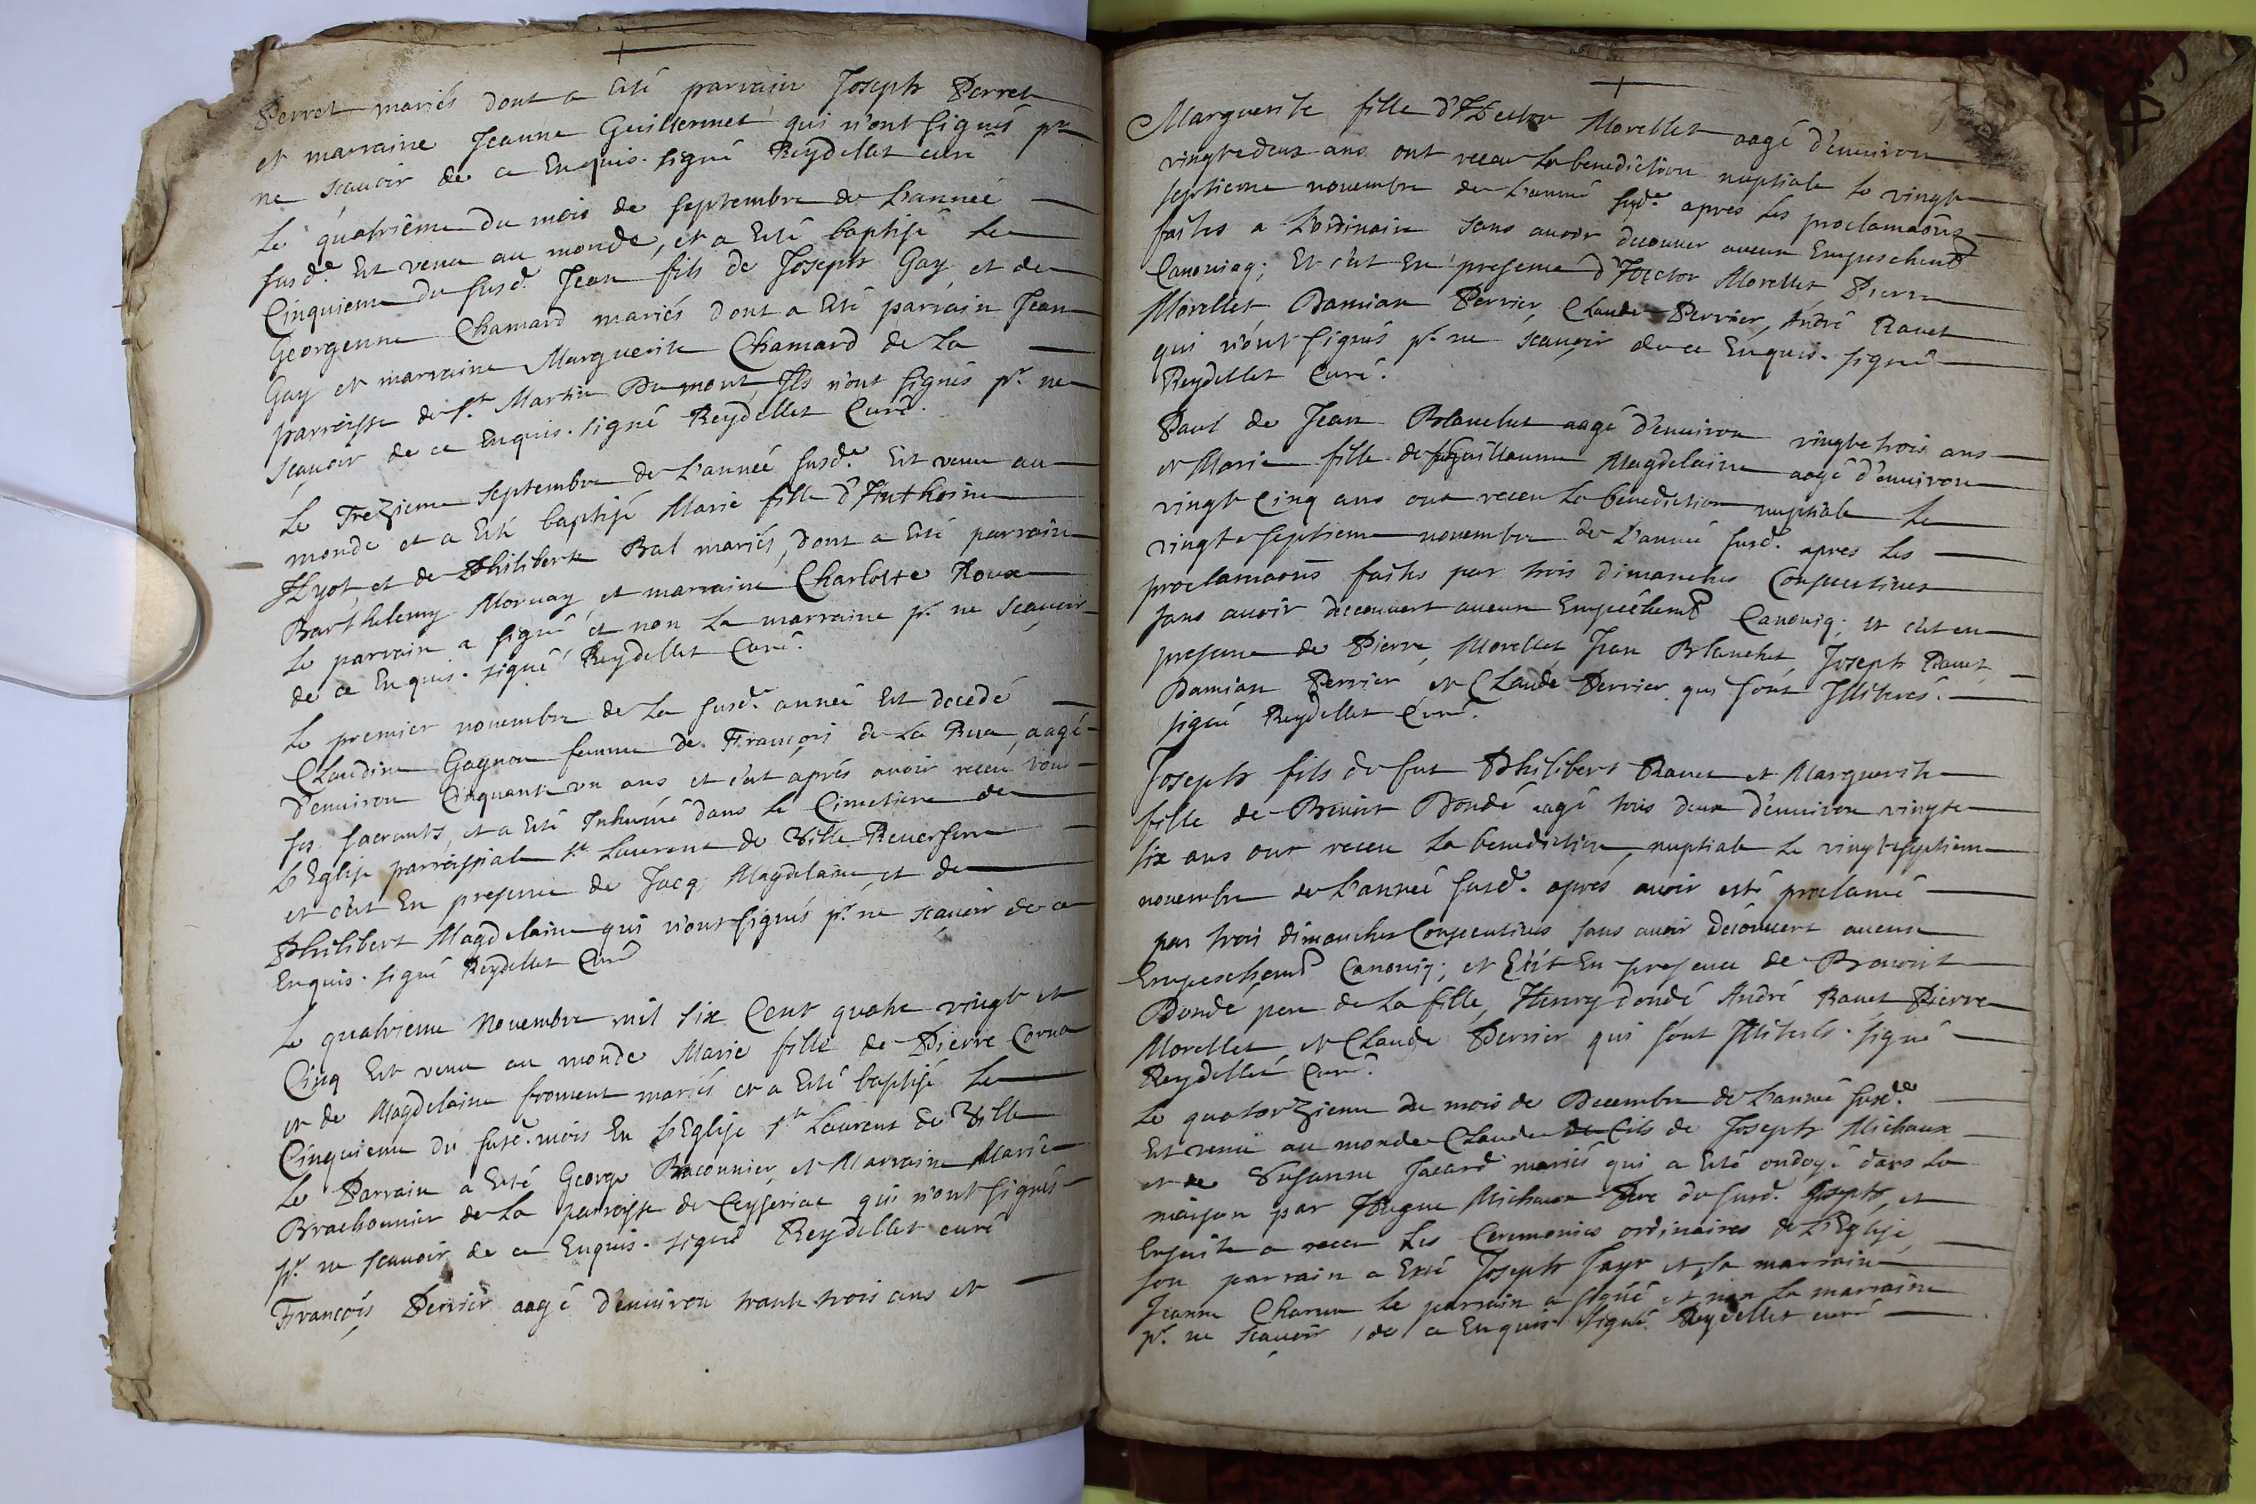 Perret mariés dont a esté parrain Joseph Perret
et marraine Jeanne Guillermet qui n'ont signés pr
ne sçauoir de ce Enquis. signé Reydellet curé
Le quatrième du mois de septembre de L'année
susd.e Est venu au monde, et a Esté baptisé le
Cinquieme du susd. Jean fils de Joseph Gay et de
Georgenne Chamard mariés dont a Esté parrain Jean
Gay et marraine Marguerite Chamard de La
parroisse de St Martin Du mont Ils n'ont signés pr. ne
sçauoir de ce Enquis. signé Reydellet Curé.
Le Treizieme septembre de L'année susd.e Est venu au
monde et a Esté baptisé Marie fille d'Anthoine
Hyot et de Philiberte Bal mariés, dont a Esté parrain
Barthelemy Moruay et marraine Charlotte Roux
Le parrain a signé et non La marraine pr. ne sçauoir
de ce Enquis. signé Reydellet Curé.
Le premier nouembre de La susd.e année Est decedé
Claudine Gagnon femme de François de La Rua, aagé
d'enuiron Cinquante un ans et c'est aprés auoir receu tous
ses sacremts, et a Esté Inhumé dans le Cimetiere de
L'Eglise parroissiale St Laurent de Ville Reuersure
et c'est En presence de Jacq. Magdelaine et de
Philibert Magdelaine qui n'ont signés pr. ne sçauoir de ce
Enquis. signé Reydellet Curé
Le quatrieme Nouembre mil six Cent quatre vingt et
Cinq Est venu au monde Marie fille de Pierre Corna
et de Magdelaine froment mariés et a Esté baptisé le
Cinquieme du susd. mois En L'Eglise St Laurent de Ville
Le Parrain a Esté George Braconnier, et Marraine Marie
Brachonnier de La parroisse de Ceyseriac qui n'ont signés
pr. ne sçauoir de ce Enquis. signé Reydellet curé
François Perrier aagé d'enuiron trante trois ans et
Marguerite fille d'Hector Morellet aagé d'enuiron
vingtedeux ans ont receu La benediction nuptiale Le vingte
septieme nouembre de L'anné susd.e apres Les proclamaons
faites a L'ordinaire sans auoir decouuer aucun Empeschemt
Canoniq; Et c'est En presence d'Hector Morellet, Pierre
Morellet Damian Perrier, Claude Perrier, André Rauet
qui n'ont signés pr. ne sçauoir de ce Enquis. signé
Reydellet Curé.
Paul de Jean Blanchet aagé d'enuiron vingtetrois ans
et Marie fille de Guillaume Magdelaine aagé d'enuiron
vingte Cinq ans ont receu La benediction nuptiale Le
vingte septieme nouembre de L'année susd. apres Les
proclamaons faites par trois dimanches Consecutiues
sans auoir decouuert aucun Empeschemt Canoniq; et c'est en
presence de Pierre Morellet, Jean Blanchet, Joseph Rauet,
Damian Perrier et Claude Perrier qui sont Illiterés.
signé Reydellet Curé.
Joseph fils de fut Philibert Rauet et Marguerite
fille de Benoit Dondé aagé tous deux d'enuiron vingte
six ans ont receu La benediction nuptiale Le vingtseptieme
nouembre de L'année susd. aprés auoir esté proclamé
par trois dimanches Consecutiues sans auoir decouuert aucun
Empeschemt Canoniq; et C'est En presence de Benoit
Dondé pere de La fille, Henry dondé André Rauet Pierre
Morellet, et Claude Perrier qui sont Illiterés. signé
Reydellet Curé.
Le quatorzieme du mois de Decembre de L'année susd.e
Est venu au monde Claude fils de Joseph Michaux
et de Susanne Jacard mariés qui a Esté ondoyé dans La
maison par Hugue Michaux Pere du susd. Joseph, et
Ensuite a receu Les Ceremonies ordinaires de L'Eglise
son parrain a Esté Joseph Jayr et sa marraine
Jeanne Charne Le parrain a signé et non La marraine
pr. ne sçauoir de ce Enquis signé. Reydellet curé